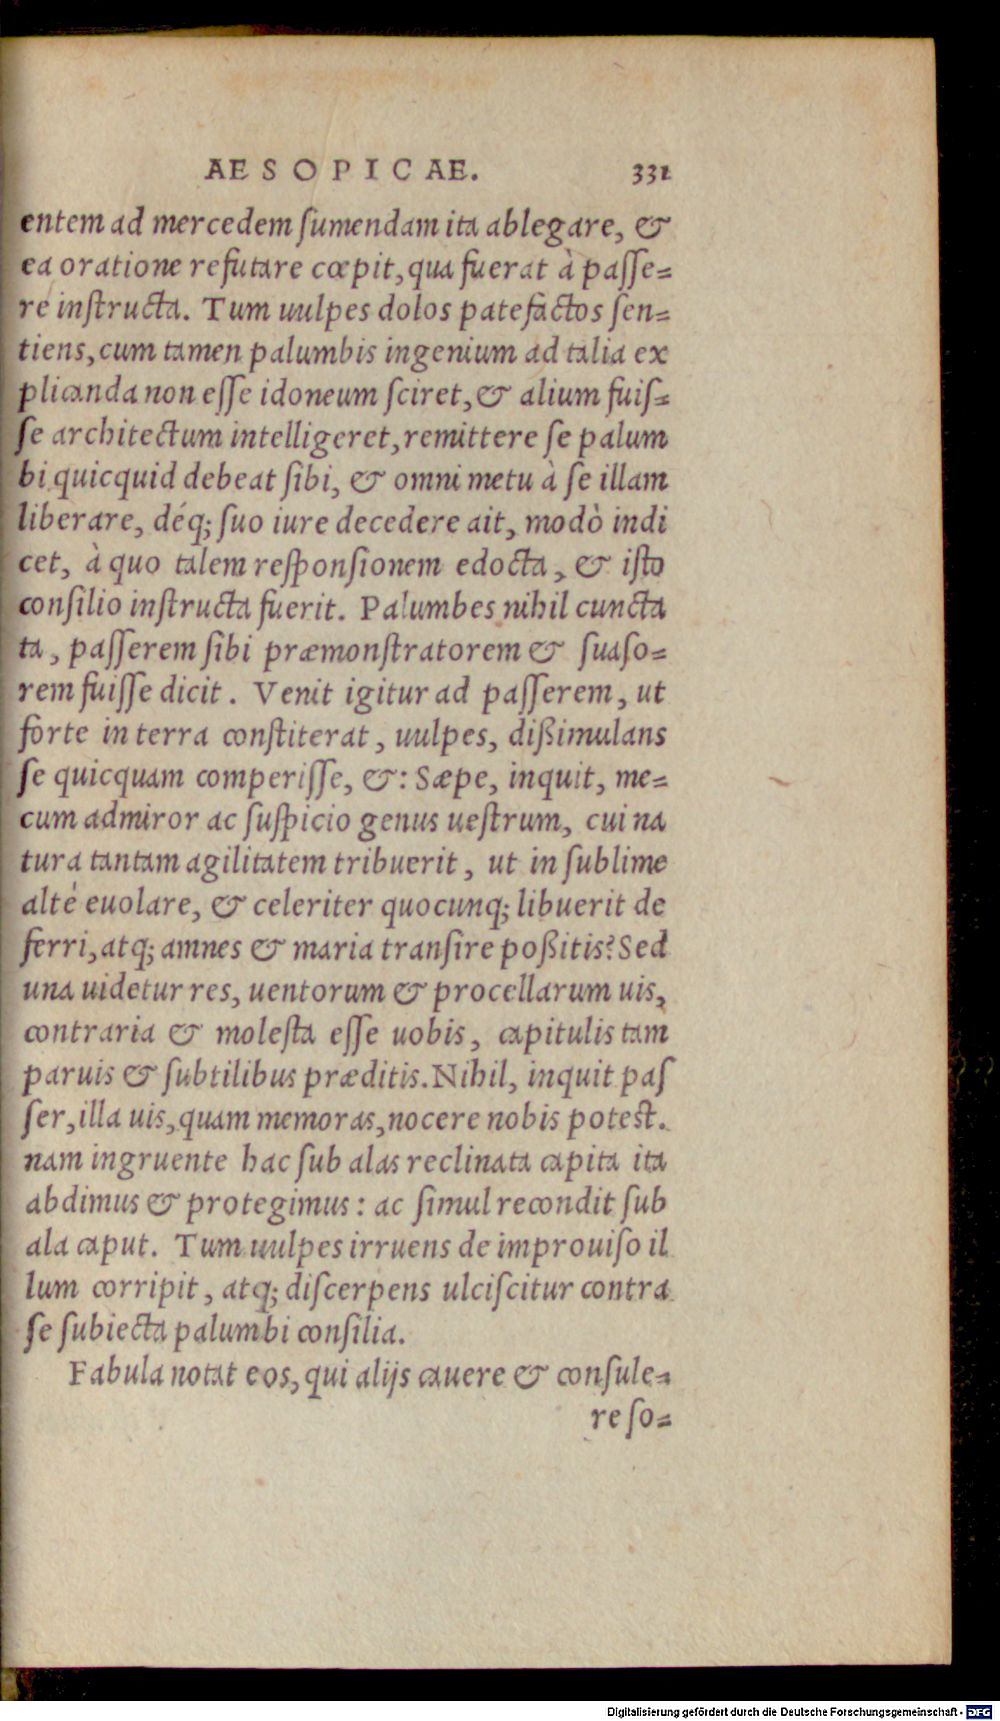 AESOPICAE. 331
entem ad mercedem ſumendam ita ablegare, &
ea oratione refutare cœpit, qua fuerat à paſſe=
re inſtructa. Tum uulpes dolos patefactos ſen=
tiens, cum tamen palumbis ingenium ad talia ex
plicanda non eſſe idoneum ſciret, & alium fuiſ=
ſe architectum intelligeret, remittere ſe palum
bi quicquid debeat ſibi, & omni metu à ſe illam
liberare, déq; ſuo iure decedere ait, modò indi
cet, à quo talem reſponſionem edocta, & iſto
conſilio inſtructa fuerit. Palumbes nihil cuncta
ta, paſſerem ſibi præmonſtratorem & ſuaſo=
rem fuiſſe dicit. Venit igitur ad paſſerem, ut
forte in terra conſtiterat, uulpes, dißimulans
ſe quicquam comperiſſe, &: Sæpe, inquit, me=
cum admiror ac ſuſpicio genus ueſtrum, cui na
tura tantam agilitatem tribuerit, ut in ſublime
alté euolare, & celeriter quocunq; libuerit de
ferri, atq; amnes & maria tranſire poßitis? Sed
una uidetur res, uentorum & procellarum uis,
contraria & moleſta eſſe uobis, capitulis tam
paruis & ſubtilibus præditis. Nihil, inquit paſ
ſer, illa uis, quam memoras, nocere nobis poteſt.
nam ingruente hac ſub alas reclinata capita ita
abdimus & protegimus: ac ſimul recondit ſub
ala caput. Tum uulpes irruens de improuiſo il
lum corripit, atq; diſcerpens ulciſcitur contra
ſe ſubiecta palumbi conſilia.
Fabula notat eos, qui alijs cauere & conſule=
re ſo=
Digitalisierung gefördert durch die Deutsche Forschungsgemeinschaft - DFG